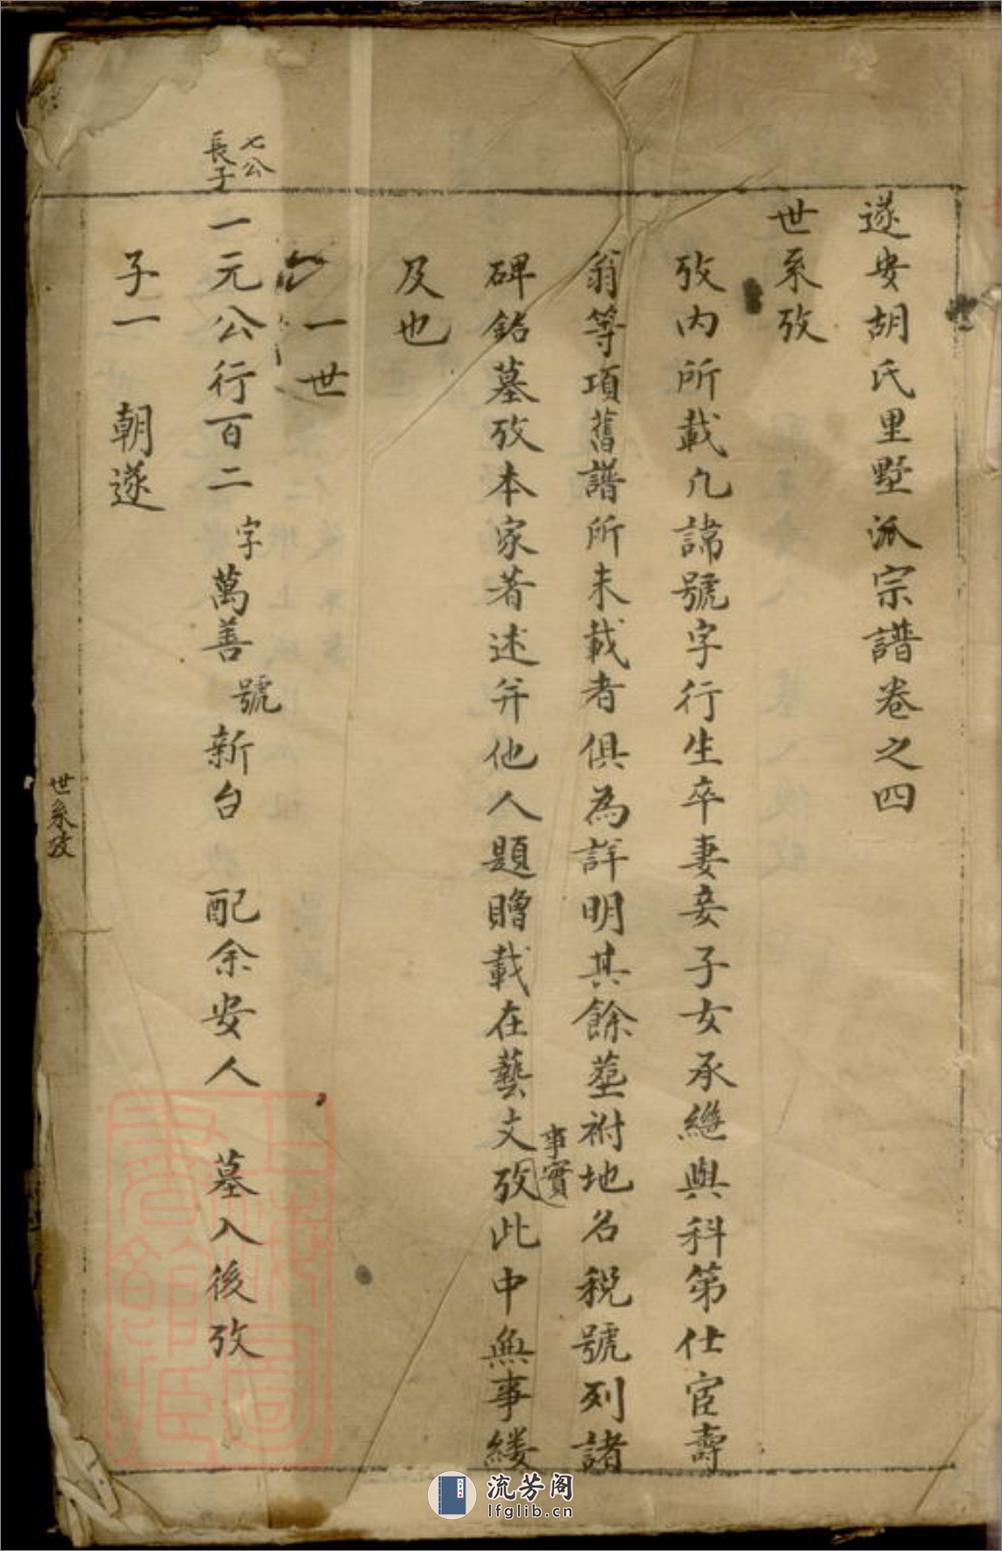 遂安胡氏里墅派宗譜卷之四
世系攷
攷內所載凡諱號字行生卒妻妾子女承繼與科第仕宦壽
翁等項舊譜所未載者俱為詳明其餘塟祔地名税號列諸
碑銘墓攷本家著述并他人題贈載在藝文事實攷此中無事縷
及也
一世
七公長子
一元公行百二字萬善號新台 配余安人 墓入後攷
子一 朝遂
世系攷
流芳阁
lfglib.cn